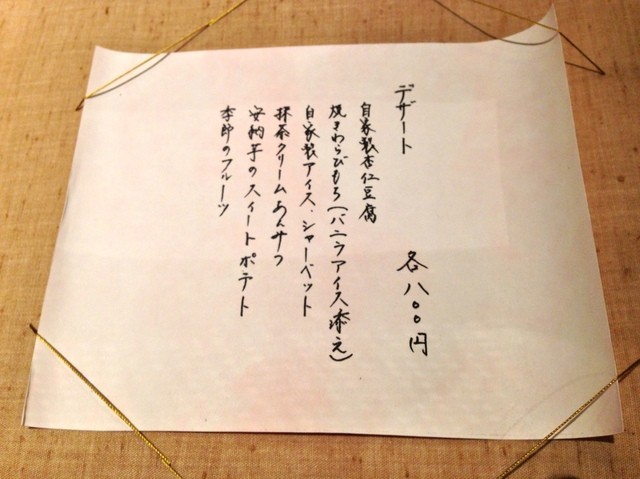 デザート
各八〇〇円
自家製杏仁豆腐
焼きわらびもち(バニラアイス添え)
自家製アイス・シャーベット
抹茶クリームあんみつ
安納芋のスイートポテト
季節のフルーツ